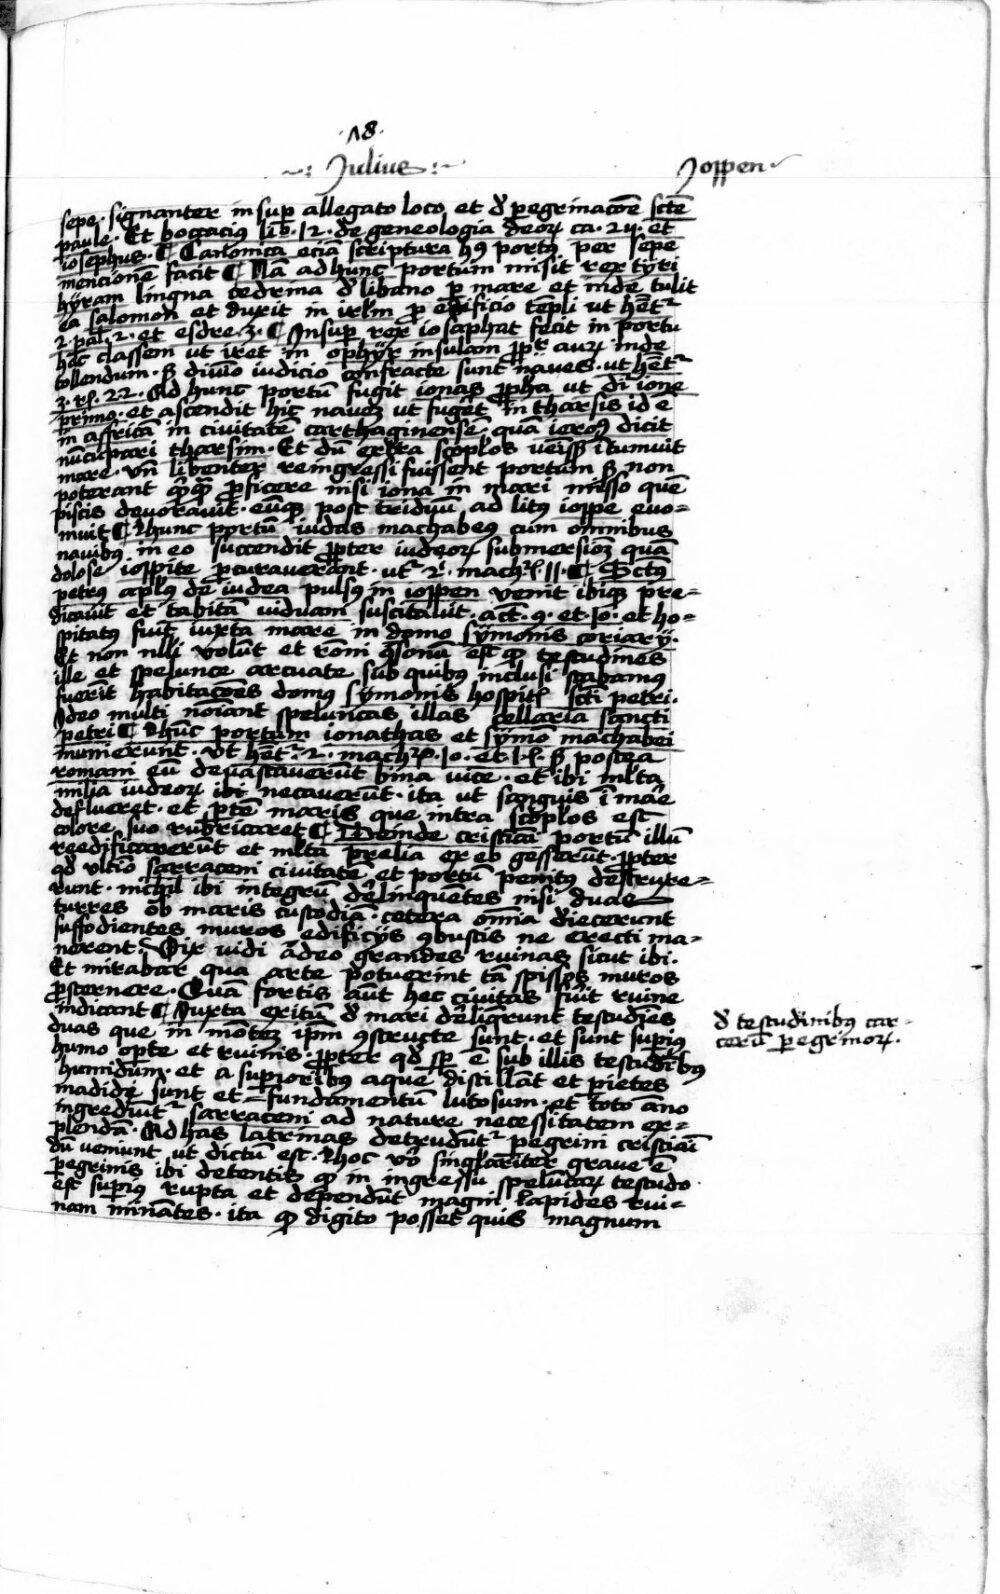 ·18·
~: Julius :~
Joppen·
sepe· signanter in sup allegato loco et d̕ pegrinacōe scte
paule· Et boccacius lib· 12· de geneologia deoꝝ ca· 24· et
iosephus· ¶ Canonica eciā scriptura hꝰ portꝰ per sepe
mencionē facit ¶ Nā ad hunc portum misit rex tyri
hyram lingna cedrina d̕ libano p mare et inde tulit
ea salomon et duxit in irlm̄ p edificio tēpli ut hētʳ
2· pal· 2· et esdre· 3· ¶ Insup rex iosaphat fecit in portu
hāc classem ut iret in ophyr insulam ꝓptʳ auꝝ inde
tollendum· ꝫ diuīo iudicio confracte sunt naues· ut hētʳ
3· rꝭ· 22· Ad hunc portū fugit ionas ꝓpha ut dr̄ ione
primo· et ascendit hic nauē ut fugēt in tharsis id ē
in affricā in ciuitatē carthaginensē· quā ieroꝰ dicit
nūcupari tharsim· Et dū extra scoplos ueīssꝫ ītumuit
mare· vn̄ libenter reingressi fuissent portum ꝫ non
poterant qͥqͣ ꝓficere nisi iona in mari misso quē
piscis deuorauit· eūqꝫ post triduū ad litꝰ ioppe euo=
muit ¶ Hunc portū iudas machabeꝰ cum omnibus
nauibꝰ in eo succendit ꝓpter iudeoꝝ submersionē quā
dolose ioppite ꝓcurauerant· utʳ 2· machꝭ· 11· ¶ Sctūs
petrꝰ apl̄ꝰ de iudea pulsꝰ in ioppen venit ibiqꝫ pre=
dicauit et tabitā uiduam suscitauit· act· 9· et· 10· et ho=
spitatꝰ fuit iuxta mare in domo symonis coriarij·
Et non nlli volūt et roni q̄sonū est qꝫ testudines
ille et spelunce arcuate sub quibus inclusi stabamus
fuerīt habitacōes domus symonis hospitꝭ scti petri·
Ideo multi noiant speluncas illas cellaria sancti
petri ¶ Hūc portum ionathas et symō machabei
munierunt· ut hētʳ· 2· machꝭ· 10· et 12· ꝫ postea
romani eū deuastauerūt bina uice· et ibi ml̄ta
milia iudeoꝝ ibi necauerūt· ita ut sanguis ī mare
deflueret· et ptē maris que intra scoplos est
colore suo rubricaret ¶ Deinde cristiani portū illū
reedificauerūt et ml̄ta prelia ex eo gesserūt· ꝓpter
qd̕ vltīo sarraceni ciuitatē et portū penitꝰ destruxe=
runt· nichil ibi integrū d̕elinquētes nisi duas
turres ob maris custodiā· cetera omīa diecerunt
suffodientes muros edificijs ꝯbustis ne erecti ma=
nerent· Vix uidi adeo grandes ruinas sicut ibi·
Et mirabar qua arte potuerint tā spissos muros
ꝓsternere· Quā fortis aūt hec ciuitas fūit ruine
indicant ¶ Iuxta exitū d̕ mari d̕eliqrunt testudies
duas que in mōtē ipm̄ ꝯstructe sunt· et sunt supiꝰ
humo opte et ruinis· ꝓpter qd̕ sp ē sub illis testudibꝰ
humidum· et a supioribꝰ aque distillāt et pietes
madide sunt et = fundamentū lutosum· et toto āno
ingrediūtʳ sarraceni ad nature necessitatem ex=
plendā· Ad has latrinas detrudūtʳ pegrini cristiāi
dū ueniunt ut dictū est· Hoc vō singlariter graue ē
pegrinis ibi detentis qꝫ in ingressu speluncaꝝ testudo
est supius rupta et dependūt magni lapides rui=
nam minātes· ita qꝫ digito posset quis magnum
d̕ testudinibꝰ car-
cerū pegrinoꝝ·